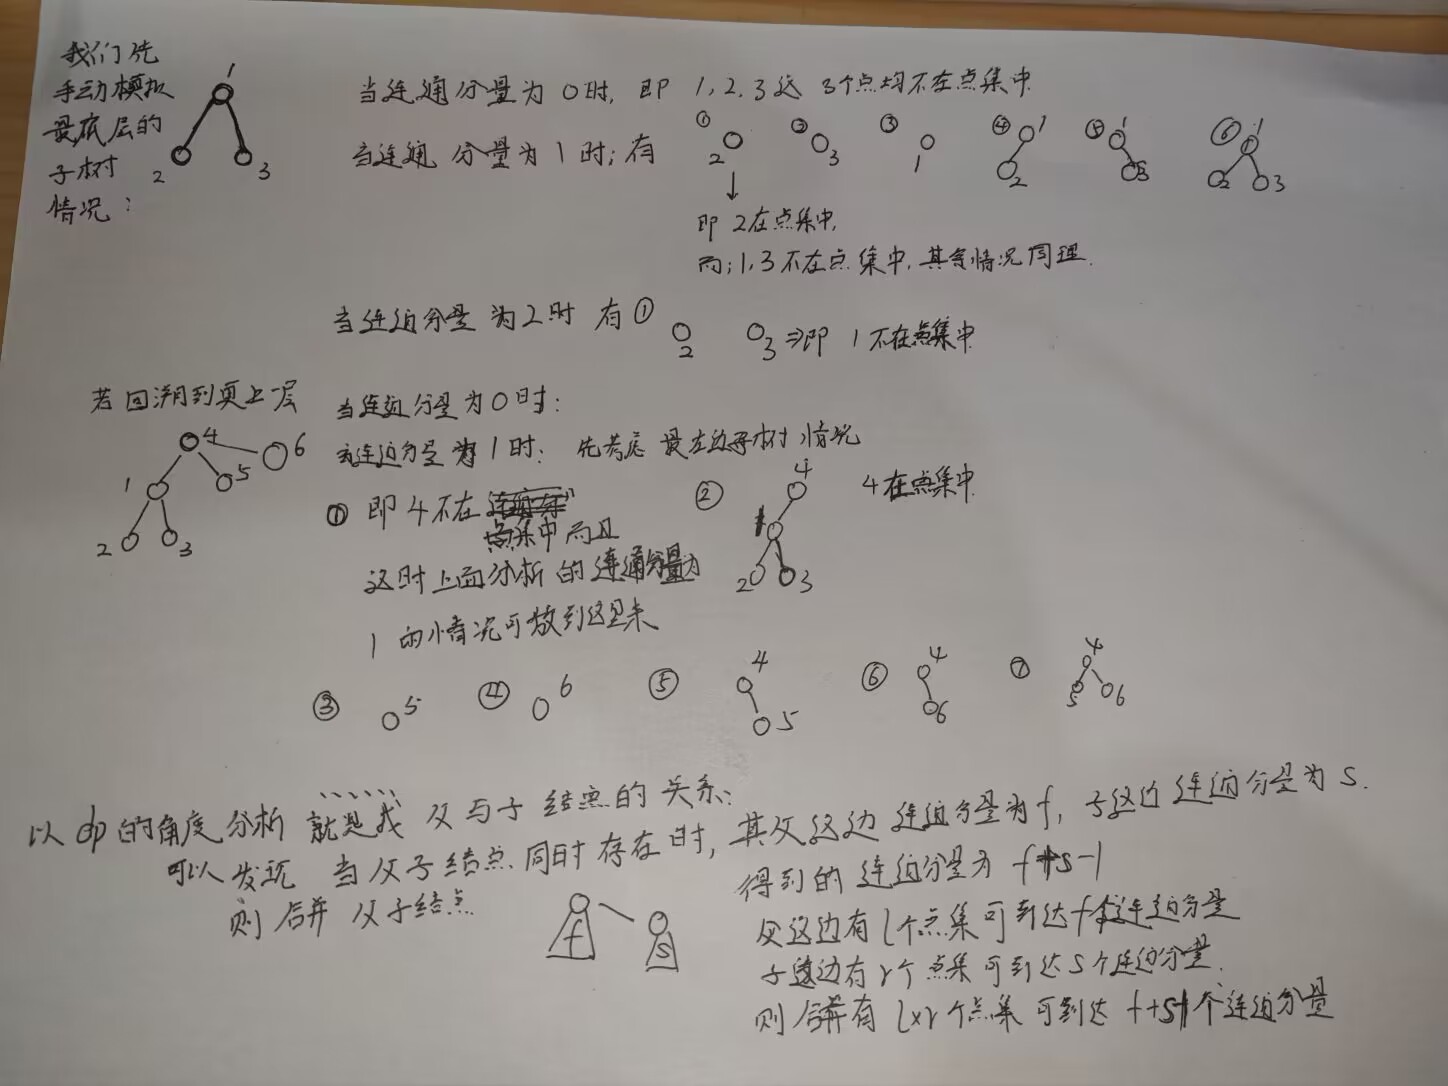 我们先
手动模拟
最底层的
子树
情况:
1
2 3
当连通分量为0时, 即 1,2,3这 3个点均不在点集中
当连通分量为1时; 有 ① 2 ② 3 ③ 1 ④ 1 2 ⑤ 1 3 ⑥ 1 2 3
即 2在点集中,
而;1,3不在点集中,其余情况同理.
当连通分量为2时 有① 2 3 ⇒即 1不在点集中
若回溯到更上一层
4 6
1 5
2 3
当连通分量为0时:
当连通分量为1时: 先考虑最左边子树情况
① 即4不在
点集中而且
这时上面分析的连通分量为
1的情况可放到这里来
② 4 1 2 3 4在点集中
③ 5 ④ 6 ⑤ 4 5 ⑥ 4 6 ⑦ 4 5 6
以dp的角度分析 就是找 父与子结点的关系:
可以发现 当父子结点同时存在时,
则合并父子结点
f s
其父这边连通分量为f, 子这边连通分量为s.
得到的连通分量为 f+s-1
父这边有l个点集可到达f个连通分量
子这边有r个点集可到达s个连通分量.
则合并有l×r个点集可到达 f+s-1个连通分量